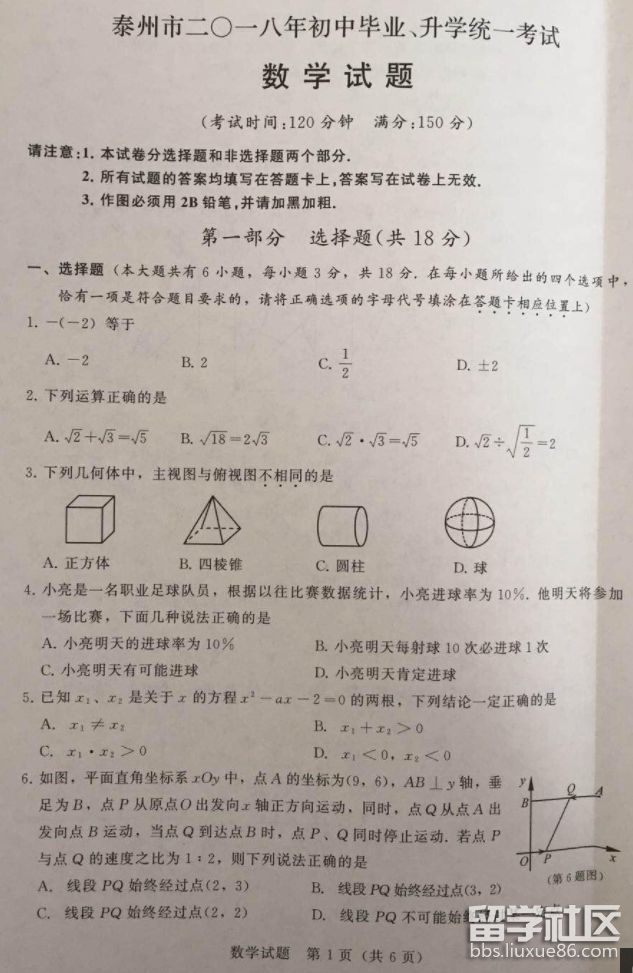 泰州市二〇一八年初中毕业、升学统一考试
数学试题
(考试时间:120分钟 满分:150分)
请注意:1. 本试卷分选择题和非选择题两个部分.
2. 所有试题的答案均填写在答题卡上,答案写在试卷上无效.
3. 作图必须用2B铅笔,并请加黑加粗.
第一部分 选择题(共18分)
一、选择题(本大题共有6小题,每小题3分,共18分.在每小题所给出的四个选项中,
恰有一项是符合题目要求的,请将正确选项的字母代号填涂在答题卡相应位置上)
1. −(−2) 等于
A. −2 B. 2 C. 1/2 D. ±2
2. 下列运算正确的是
A. √2+√3=√5 B. √18=2√3 C. √2·√3=√5 D. √2÷√(1/2)=2
3. 下列几何体中,主视图与俯视图不相同的是
A. 正方体 B. 四棱锥 C. 圆柱 D. 球
4. 小亮是一名职业足球队员,根据以往比赛数据统计,小亮进球率为10%.他明天将参加
一场比赛,下面几种说法正确的是
A. 小亮明天的进球率为10% B. 小亮明天每射球10次必进球1次
C. 小亮明天有可能进球 D. 小亮明天肯定进球
5. 已知x₁、x₂是关于x的方程x²−ax−2=0的两根,下列结论一定正确的是
A. x₁≠x₂ B. x₁+x₂>0
C. x₁·x₂>0 D. x₁<0,x₂<0
6. 如图,平面直角坐标系xOy中,点A的坐标为(9,6),AB⊥y轴,垂
足为B,点P从原点O出发向x轴正方向运动,同时,点Q从点A出
发向点B运动,当点Q到达点B时,点P、Q同时停止运动.若点P
与点Q的速度之比为1:2,则下列说法正确的是
A. 线段PQ始终经过点(2,3) B. 线段PQ始终经过点(3,2)
C. 线段PQ始终经过点(2,2) D. 线段PQ不可能始
y
B Q A
O P x
(第6题图)
数学试题 第1页(共6页)
留学社区
bbs.liuxue86.com